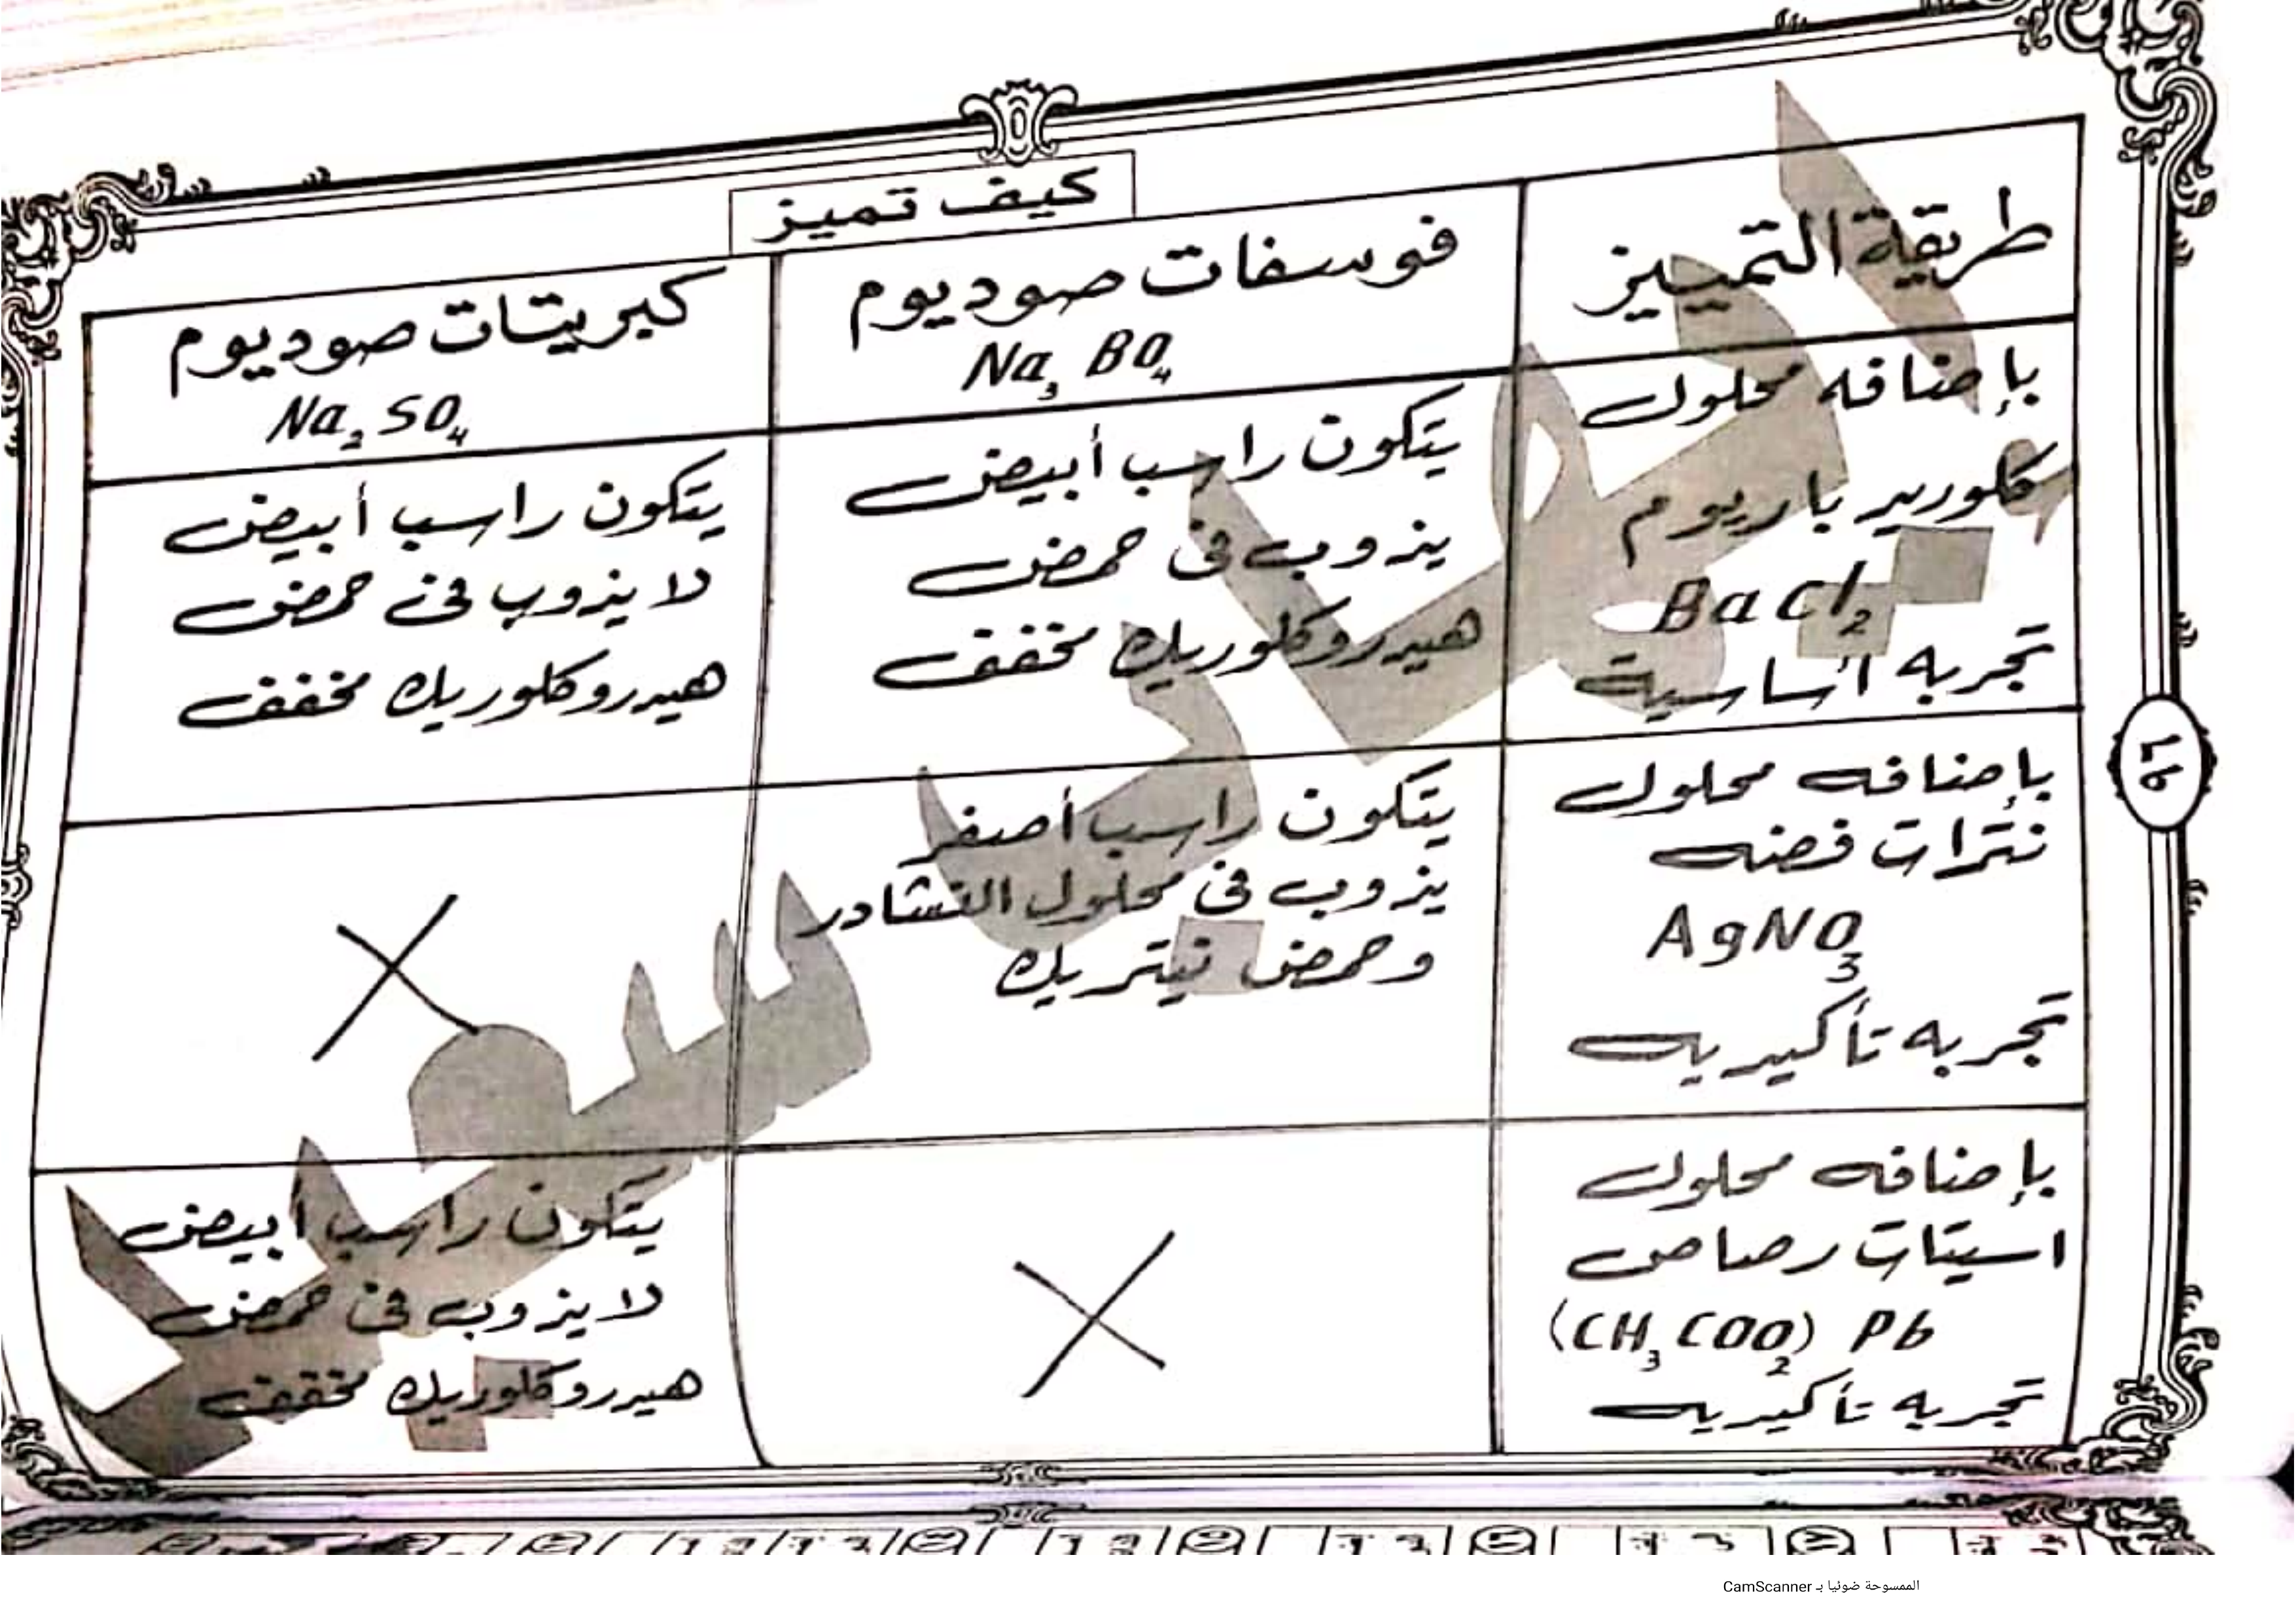 كيف تميز
طريقة التمييز
فوسفات صوديوم
Na₃ BO₄
كبريتات صوديوم
Na₂ SO₄
بإضافه محلول
كلوريد باريوم
BaCl₂
تجربه أساسية
يتكون راسب أبيض
يذوب فى حمض
هيدروكلوريك مخفف
يتكون راسب أبيض
لا يذوب فى حمض
هيدروكلوريك مخفف
بإضافه محلول
نترات فضه
AgNO₃
تجربه تأكيديه
يتكون راسب أصفر
يذوب فى محلول النشادر
وحمض نيتريك
بإضافه محلول
اسيتات رصاص
(CH₃COO₂) Pb
تجربه تأكيديه
يتكون راسب أبيض
لا يذوب فى حمض
هيدروكلوريك مخفف
الممسوحة ضوئيا بـ CamScanner